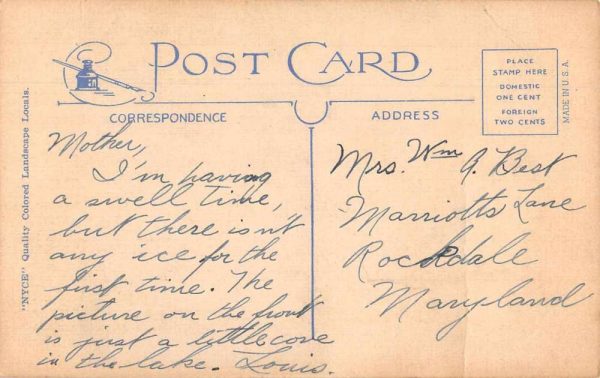 POST CARD
PLACE
STAMP HERE
DOMESTIC
ONE CENT
FOREIGN
TWO CENTS
MADE IN U.S.A.
"NYCE" Quality Colored Landscape Locals.
CORRESPONDENCE
ADDRESS
Mother,
I'm having
a swell time,
but there isn't
any ice for the
first time. The
picture on the front
is just a little cove
in the lake. Louis.
Mrs. Wm A. Best
Marriotts Lane
Rockdale
Maryland